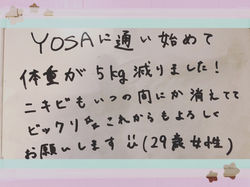 YOSAに通い始めて
体重が5kg減りました!
ニキビもいつの間にか消えてて
ビックリ☆☆これからもよろしく
お願いします(29歳女性)